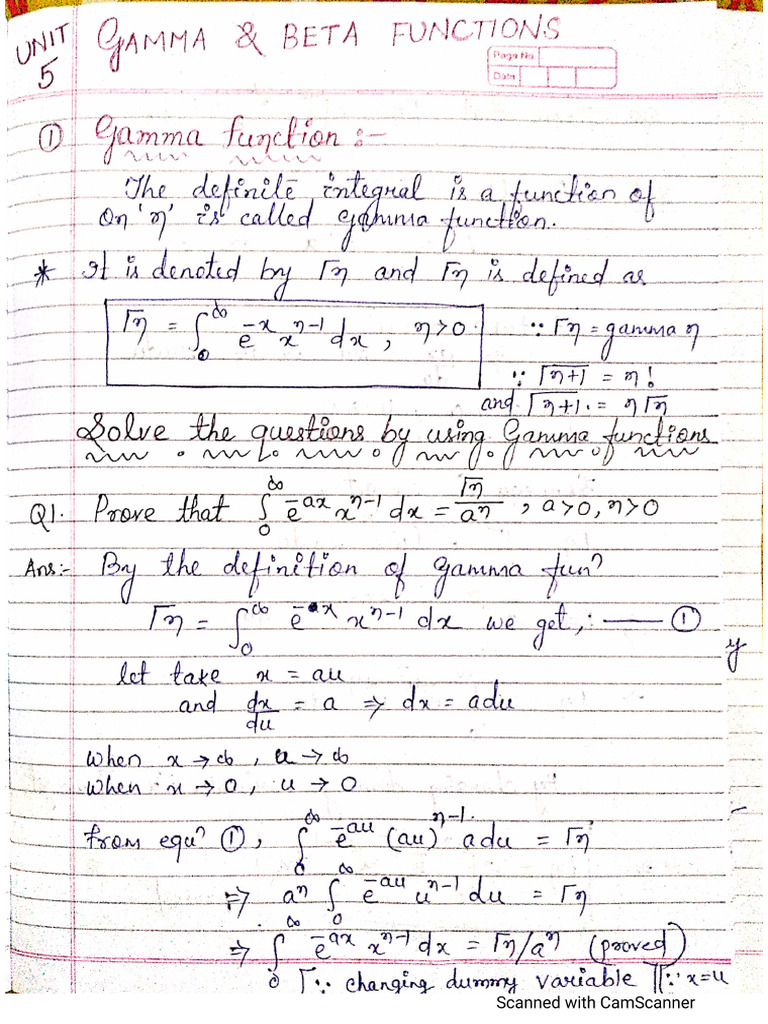 UNIT 5
GAMMA & BETA FUNCTIONS
Page No
Date
① Gamma function :-
The definite integral is a function of
on 'η' is called gamma function.
* It is denoted by Γη and Γη is defined as
Γη = ∫₀^∞ e^-x x^η-1 dx, η>0
∵ Γη = gamma η
∵ Γη+1 = η!
and Γη+1 = ηΓη
Solve the questions by using Gamma functions
Q1. Prove that ∫₀^∞ e^-ax x^η-1 dx = Γη/a^η, a>0, η>0
Ans:- By the definition of gamma funⁿ
Γη = ∫₀^∞ e^-x x^η-1 dx we get, : —— ①
y
let take x = au
and dx/du = a ⇒ dx = adu
when x → ∞, u → ∞
when x → 0, u → 0
from equⁿ ①, ∫₀^∞ e^-au (au)^η-1 adu = Γη
⇒ a^η ∫₀^∞ e^-au u^η-1 du = Γη
⇒ ∫₀^∞ e^-ax x^η-1 dx = Γη/a^η (proved)
[∵ changing dummy variable ∵ x=u
Scanned with CamScanner